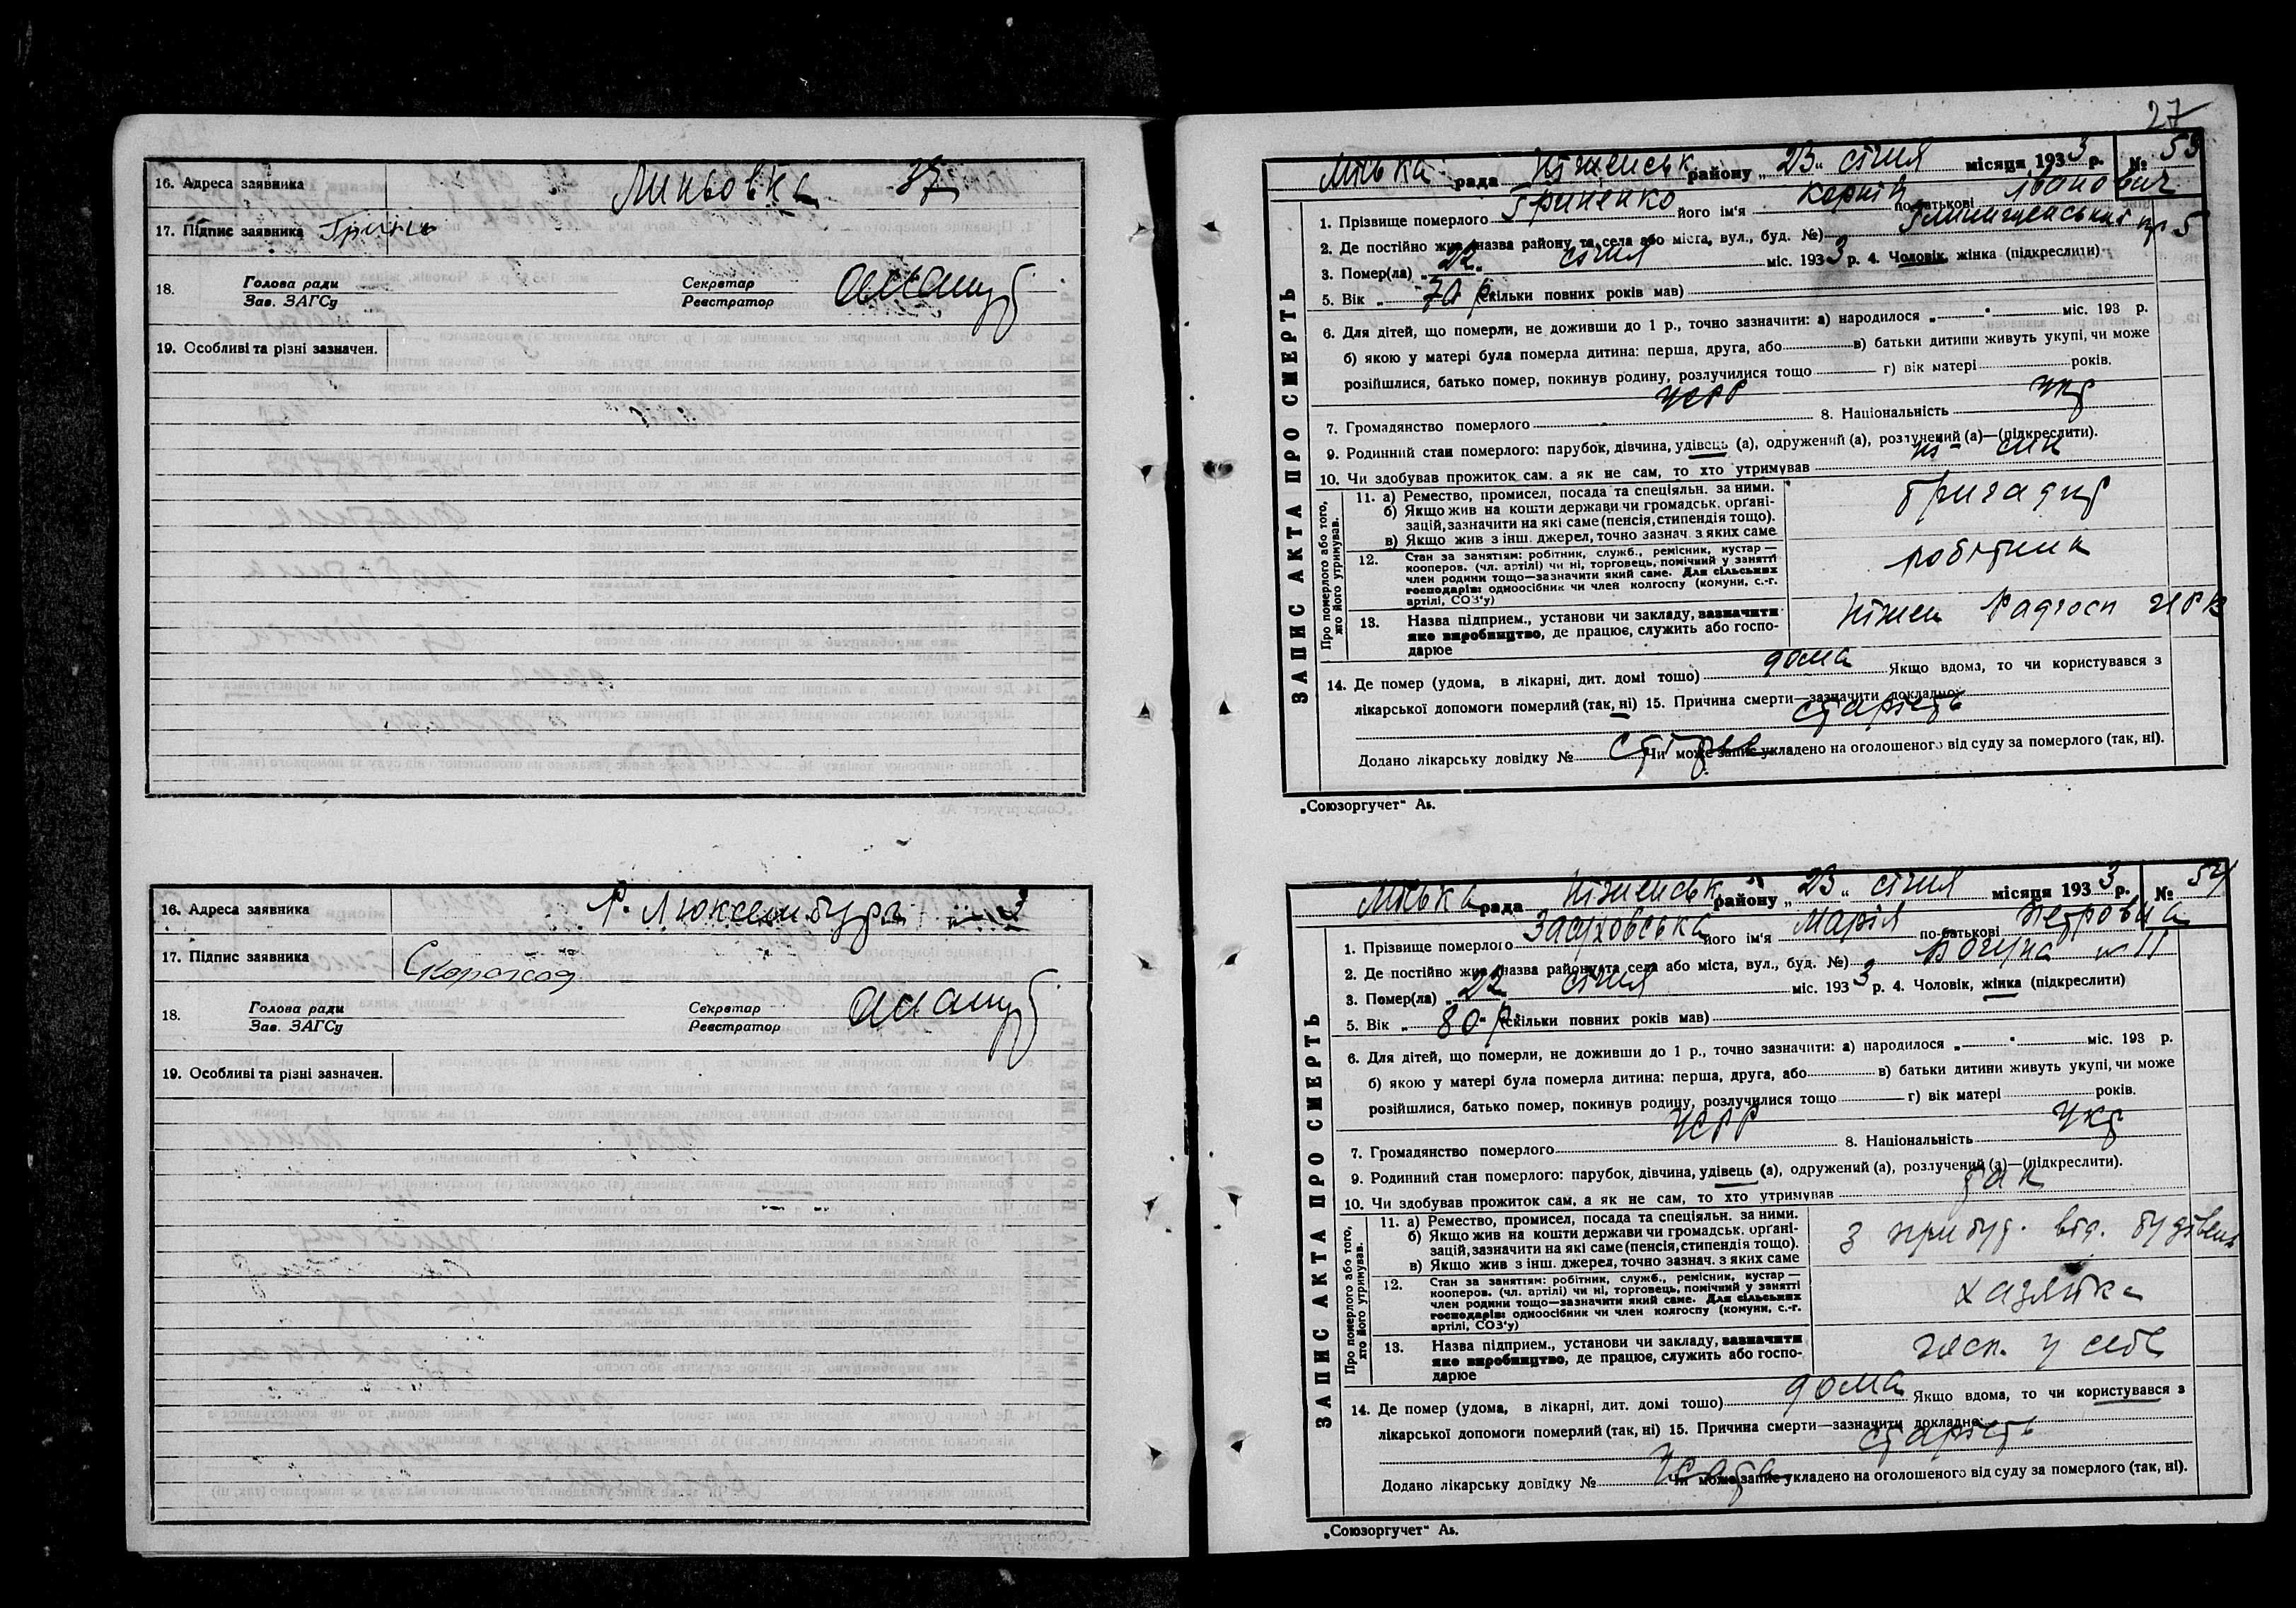 16. Адреса заявника Линьовка 37
17. Підпис заявника
18. Голова ради
Зав. ЗАГСу
Секретар
Реєстратор
19. Особливі та різні зазначен.
16. Адреса заявника Р. Люксембург 3
17. Підпис заявника Скороход
18. Голова ради
Зав. ЗАГСу
Секретар
Реєстратор
19. Особливі та різні зазначен.
27
ЗАПИС АКТА ПРО СМЕРТЬ
Міська рада Ніженськ району „23" січня місяця 1933 р. № 53
1. Прізвище померлого Гриненко його ім'я Корній по-батькові Іванович
2. Де постійно жив (назва району та села або міста, вул., буд. №) 5
3. Помер(ла) „22" січня міс. 1933 р. 4. Чоловік, жінка (підкреслити)
5. Вік „ 70 р. (скільки повних років мав)
6. Для дітей, що померли, не доживши до 1 р., точно зазначити: а) народилося „ " міс. 193 р.
б) якою у матері була померла дитина: перша, друга, або в) батьки дитини живуть укупі, чи може
розійшлися, батько помер, покинув родину, розлучилися тощо г) вік матері років.
7. Громадянство померлого УСРР 8. Національність укр
9. Родинний стан померлого: парубок, дівчина, удівець (а), одружений (а), розлучений (а)—(підкреслити).
10. Чи здобував прожиток сам, а як не сам, то хто утримував ні - син
Про померлого або того, хто його утримував.
11. а) Ремество, промисел, посада та спеціяльн. за ними.
б) Якщо жив на кошти держави чи громадськ. органі-
зацій, зазначити на які саме (пенсія, стипендія тощо).
в) Якщо жив з інш. джерел, точно зазнач. з яких саме
бригадир
12. Стан за занятіям: робітник, служб., ремісник, кустар —
кооперов. (чл. артілі) чи ні, торговець, помічний у занятті
член родини тощо—зазначити який саме. Для сільських
господарів: одноосібник чи член колгоспу (комуни, с.-г.
артілі, СОЗ'у)
робітник
13. Назва підприєм., установи чи закладу, зазначити
яке виробництво, де працює, служить або госпо-
дарює
Ніжен Радгосп
14. Де помер (удома, в лікарні, дит. домі тощо) дома Якщо вдома, то чи користувався з
лікарської допомоги померлий (так, ні) 15. Причина смерти—зазначити докладно:
старість
Додано лікарську довідку № Чи може запис укладено на оголошеного від суду за померлого (так, ні).
„Союзоргучет" Аь.
ЗАПИС АКТА ПРО СМЕРТЬ
Міська рада Ніженськ району „23" січня місяця 1933 р. № 54
1. Прізвище померлого його ім'я Марія по-батькові Петровна
2. Де постійно жив (назва району та села або міста, вул., буд. №) Богуна № 11
3. Помер(ла) „22" січня міс. 1933 р. 4. Чоловік, жінка (підкреслити)
5. Вік „ 80 р. (скільки повних років мав)
6. Для дітей, що померли, не доживши до 1 р., точно зазначити: а) народилося „ " міс. 193 р.
б) якою у матері була померла дитина: перша, друга, або в) батьки дитини живуть укупі, чи може
розійшлися, батько помер, покинув родину, розлучилися тощо г) вік матері років.
7. Громадянство померлого УСРР 8. Національність Укр
9. Родинний стан померлого: парубок, дівчина, удівець (а), одружений (а), розлучений (а)—(підкреслити).
10. Чи здобував прожиток сам, а як не сам, то хто утримував так
Про померлого або того, хто його утримував.
11. а) Ремество, промисел, посада та спеціяльн. за ними.
б) Якщо жив на кошти держави чи громадськ. органі-
зацій, зазначити на які саме (пенсія, стипендія тощо).
в) Якщо жив з інш. джерел, точно зазнач. з яких саме
з прибут. від. будівель
12. Стан за занятіям: робітник, служб., ремісник, кустар —
кооперов. (чл. артілі) чи ні, торговець, помічний у занятті
член родини тощо—зазначити який саме. Для сільських
господарів: одноосібник чи член колгоспу (комуни, с.-г.
артілі, СОЗ'у)
хазяйка
13. Назва підприєм., установи чи закладу, зазначити
яке виробництво, де працює, служить або госпо-
дарює
госп. у себе
14. Де помер (удома, в лікарні, дит. домі тощо) дома Якщо вдома, то чи користувався з
лікарської допомоги померлий (так, ні) 15. Причина смерти—зазначити докладно:
старість
Додано лікарську довідку № Чи може запис укладено на оголошеного від суду за померлого (так, ні).
„Союзоргучет" Аь.